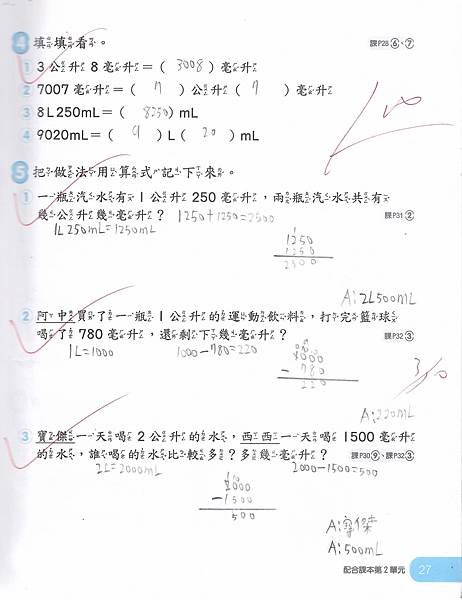 4 填填看。 課P28⑥、⑦
① 3公升8毫升=( 3008 )毫升
② 7007毫升=( 7 )公升( 7 )毫升
③ 8L250mL=( 8250 )mL
④ 9020mL=( 9 )L( 20 )mL
100
5 把做法用算式記下來。
① 一瓶汽水有1公升250毫升,兩瓶汽水共有
幾公升幾毫升? 1250+1250=2500 課P31②
1L250mL=1250mL
1250
1250
2500
A:2L500mL
② 阿中買了一瓶1公升的運動飲料,打完籃球
喝了780毫升,還剩下幾毫升? 課P32③
1L=1000 1000-780=220
1000
-780
220
A:220mL
③ 寶傑一天喝2公升的水,西西一天喝1500毫升
的水,誰喝的水比較多?多幾毫升? 課P30⑨、課P32③
2L=2000mL 2000-1500=500
2000
-1500
500
A:寶傑
A:500mL
配合課本第2單元 27